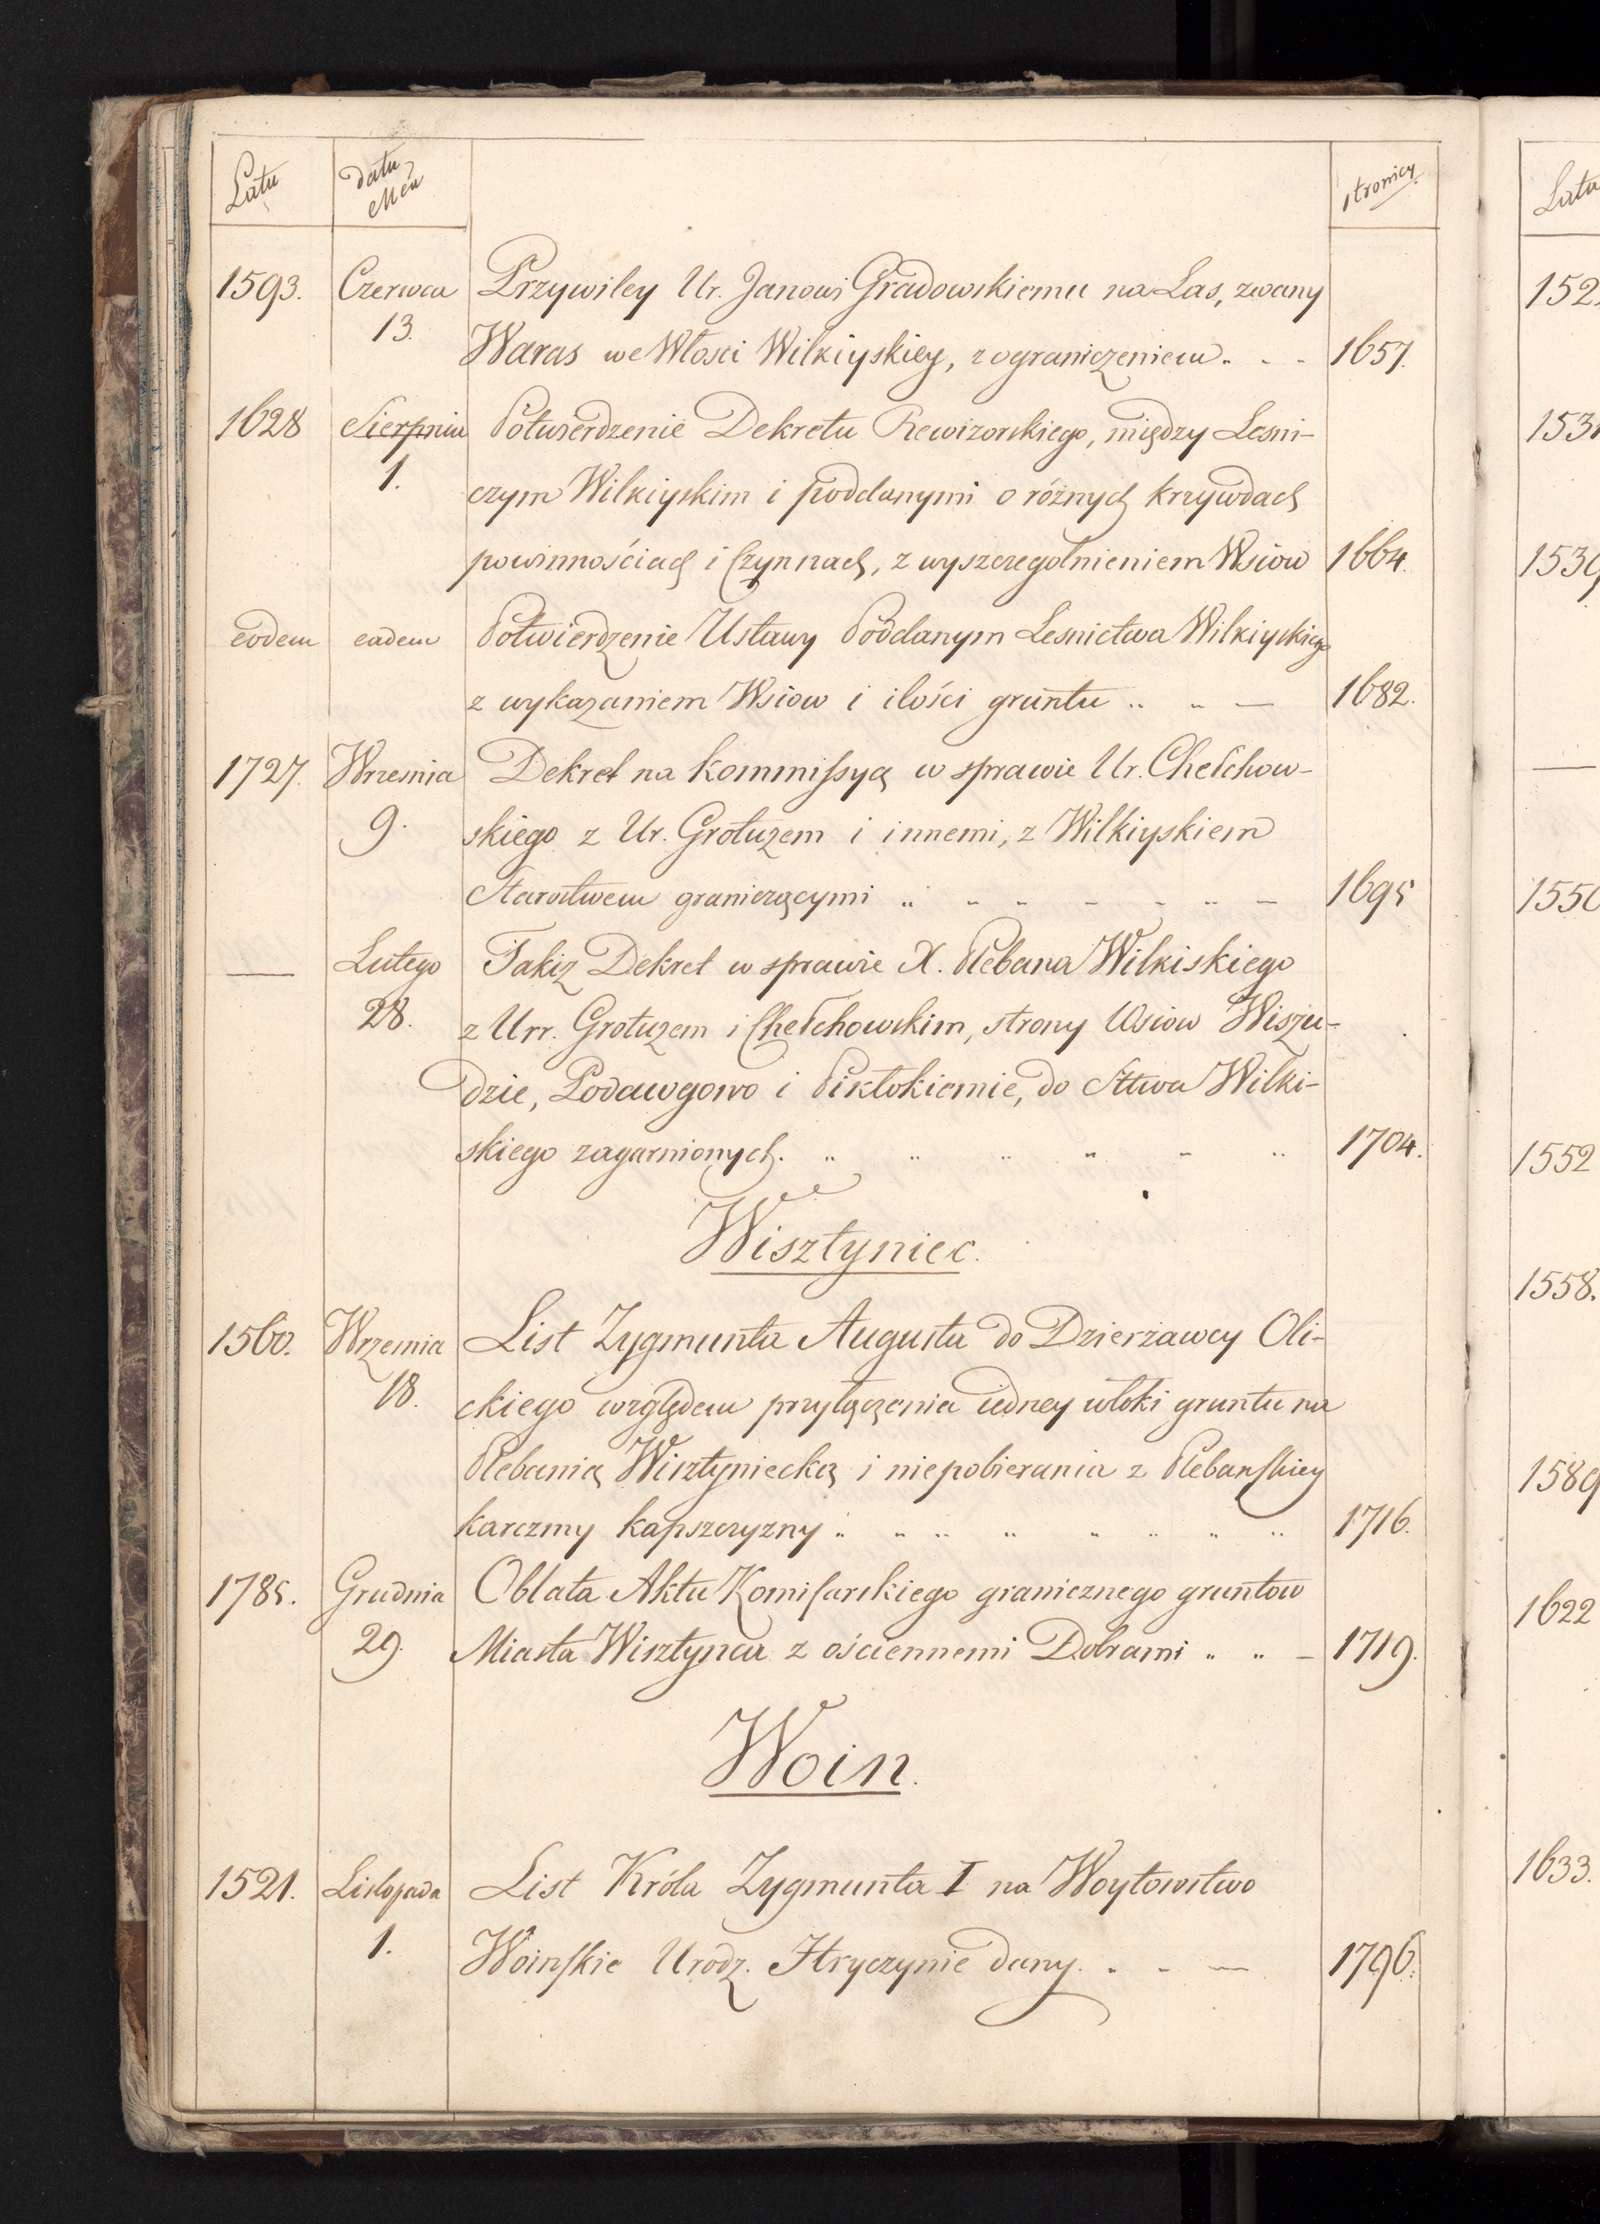 Latu
datu
Mca
stronicy.
1593. Czerwca Przywiley Ur. Janowi Gradowskiemu na Las, zwany
13. Waras we Włosci Wilkiyskiey, z ograniczeniem 1657.
1628 Sierpnia Potwierdzenie Dekretu Rewizorskiego, między Lesni-
1. czym Wilkiyskim i poddanymi o różnych krzywdach
powinnościach i Czynnach, z wyszczegolnieniem Wsiow 1664.
eodem eadem Potwierdzenie Ustawy Poddanym Lesnictwa Wilkiyskiego
z wykazaniem Wsiow i ilości gruntu 1682.
1727. Wrzesnia Dekret na kommissyą w sprawie Ur. Chełchow-
9. skiego z Ur. Grotuzem i innemi, z Wilkiyskiem
Starostwem graniczącymi 1695
— Lutego Takiz Dekret w sprawie X. Plebana Wilkiskiego
28. z Urr. Grotuzem i Chełchowskim, strony Wsiow Wiszu-
dzie, Podawgowo i Piktokiemie, do Sttwa Wilki-
skiego zagarnionych. 1704.
Wisztyniec.
1560. Wrzesnia List Zygmunta Augusta do Dzierżawcy Oli-
18. ckiego względem przyłączenia iedney włoki gruntu na
Plebanią Wisztyniecką i niepobierania z Plebanskiey
karczmy kapszczyzny 1716.
1785. Grudnia Oblata Aktu Komisarskiego granicznego gruntow
29. Miasta Wisztynca z ościennemi Dobrami 1719.
Woin.
1521. Listopada List Króla Zygmunta I na Woytowstwo
1. Woinskie Urodz. Hryczynie dany. 1796.
Lata
1539
1552
1558.
1622
1633.